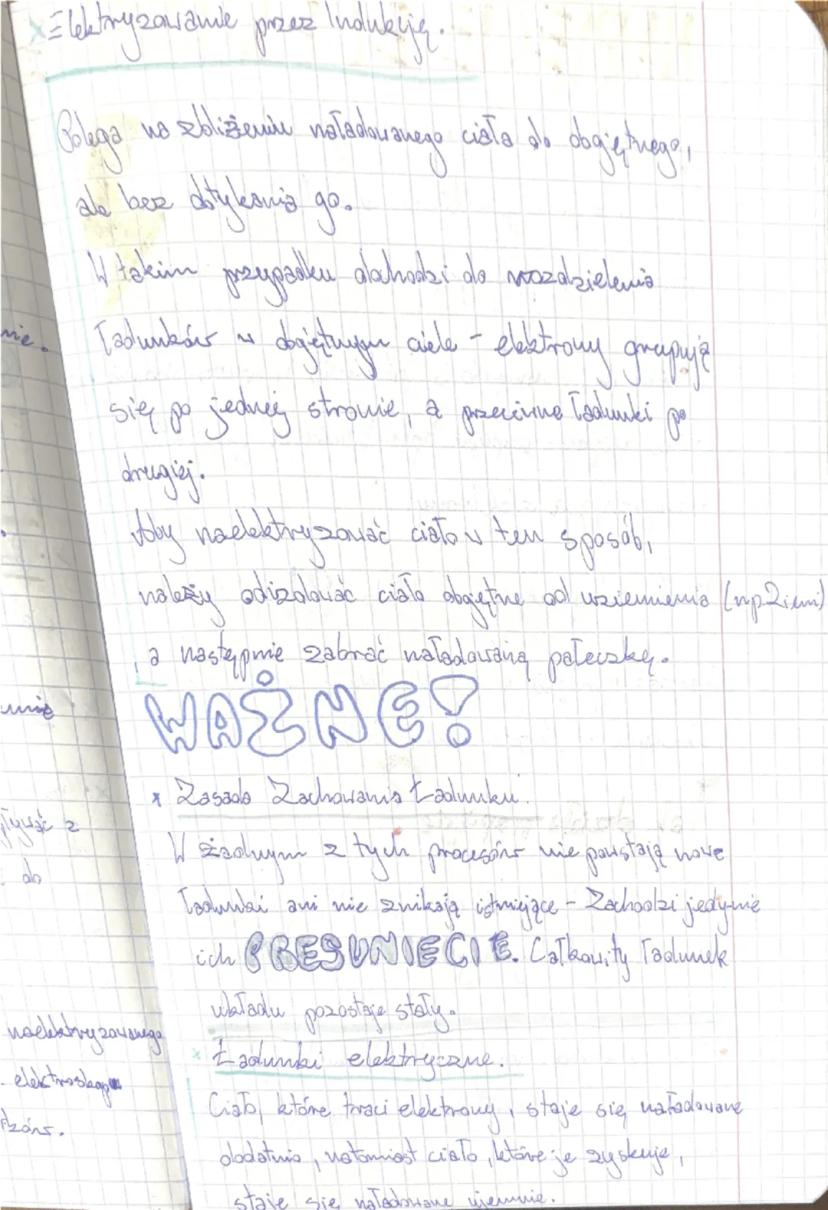 Elektryzowanie przez Indukcję.
Polega na zbliżeniu naładowanego ciała do obojętnego,
ale bez dotykania go.
W takim przypadku dochodzi do rozdzielenia
ładunków w obojętnym ciele - elektrony grupują
się po jednej stronie, a przeciwne ładunki po
drugiej.
Aby naelektryzować ciało w ten sposób,
należy odizolować ciało obojętne od uziemienia (np Ziemi)
, a następnie zabrać naładowaną pałeczkę.
WAŻNE!
x Zasada Zachowania Ładunku.
W żadnym z tych procesów nie powstają nowe
ładunki ani nie znikają istniejące - Zachodzi jedynie
ich PRESUNIECIE. Całkowity ładunek
układu pozostaje stały.
x Ładunki elektryczne.
Ciało, które traci elektrony, staje się naładowane
dodatnio, natomiast ciało, które je zyskuje,
staje się naładowane ujemnie.
nie.
do
naelektryzowanego